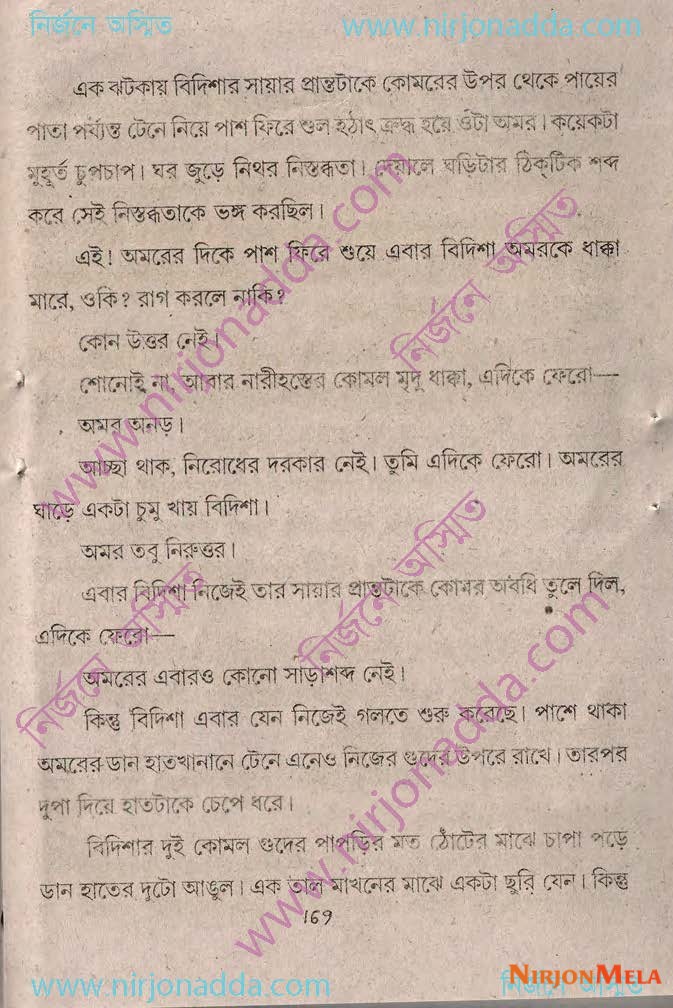 নির্জনে অস্মিত www.nirjonadda.com
এক ঝটকায় বিদিশার সায়ার প্রান্তটাকে কোমরের উপর থেকে পায়ের
পাতা পর্য্যন্ত টেনে নিয়ে পাশ ফিরে শুল হঠাৎ ক্রুদ্ধ হয়ে ওঁটা অমর। কয়েকটা
মুহূর্ত চুপচাপ। ঘর জুড়ে নিথর নিস্তব্ধতা। দেয়ালে ঘড়িটার ঠিক্‌টিক শব্দ
করে সেই নিস্তব্ধতাকে ভঙ্গ করছিল।
এই! অমরের দিকে পাশ ফিরে শুয়ে এবার বিদিশা অমরকে ধাক্কা
মারে, ওকি? রাগ করলে নাকি?
কোন উত্তর নেই।
শোনোই না, আবার নারীহস্তের কোমল মৃদু ধাক্কা, এদিকে ফেরো—
অমর অনড়।
আচ্ছা থাক, নিরোধের দরকার নেই। তুমি এদিকে ফেরো। অমরের
ঘাড়ে একটা চুমু খায় বিদিশা।
অমর তবু নিরুত্তর।
এবার বিদিশা নিজেই তার সায়ার প্রান্তটাকে কোমর অবধি তুলে দিল,
এদিকে ফেরো—
অমরের এবারও কোনো সাড়াশব্দ নেই।
কিন্তু বিদিশা এবার যেন নিজেই গলতে শুরু করেছে। পাশে থাকা
অমরের ডান হাতখানানে টেনে এনেও নিজের গুদের উপরে রাখে। তারপর
দুপা দিয়ে হাতটাকে চেপে ধরে।
বিদিশার দুই কোমল গুদের পাপড়ির মত ঠোঁটের মাঝে চাপা পড়ে
ডান হাতের দুটো আঙুল। এক তাল মাখনের মাঝে একটা ছুরি যেন। কিন্তু
169
www.nirjonadda.com নির্জনে অস্মিত
NIRJONMELA
www.nirjonadda.com
নির্জনে অস্মিত
নির্জনে অস্মিত
নির্জনে অস্মিত
www.nirjonadda.com